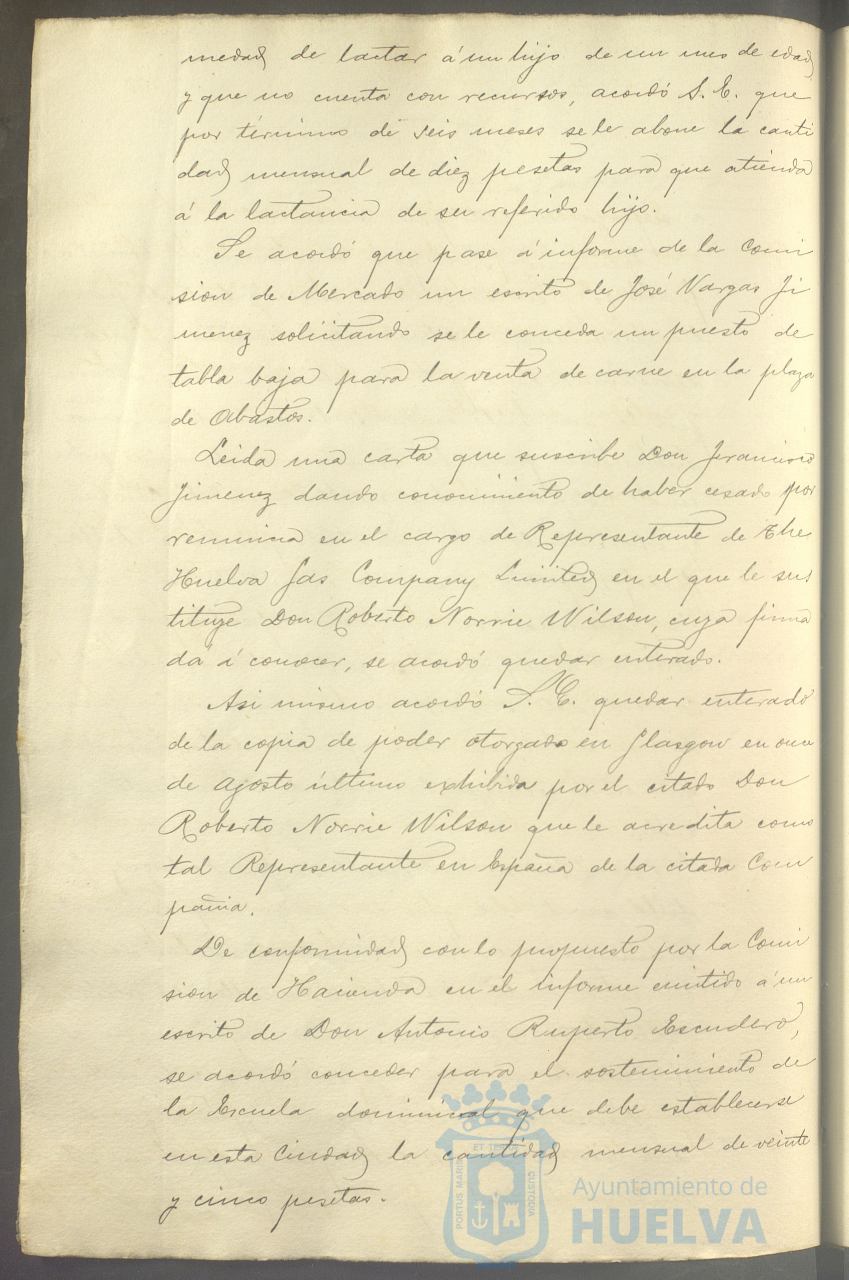 medad de lactar á un hijo de un mes de edad
y que no cuenta con recursos, acordó S. E. que
por término de seis meses se le abone la canti
dad mensual de diez pesetas para que atienda
á la lactancia de su referido hijo.
Se acordó que pase á informe de la Comi
sion de Mercado un escrito de José Vargas Ji
menez solicitando se le conceda un puesto de
tabla baja para la venta de carne en la plaza
de Abastos.
Leida una carta que suscribe Don Francisco
Jimenez dando conocimiento de haber cesado por
renuncia en el cargo de Representante de The
Huelva Gas Company Limited en el que le sus
tituye Don Roberto Norrie Wilson, cuya firma
dá á conocer, se acordó quedar enterado.
Asi mismo acordó S. E. quedar enterado
de la copia de poder otorgado en Glasgow en once
de Agosto último exhibida por el citado Don
Roberto Norrie Wilson que le acredita como
tal Representante en España de la citada Com
pañia.
De conformidad con lo propuesto por la Comi
sion de Hacienda en el informe emitido á un
escrito de Don Antonio Ruperto Escudero,
se acordó conceder para el sostenimiento de
la Escuela dominical que debe establecerse
en esta Ciudad la cantidad mensual de veinte
y cinco pesetas.
PORTUS MARIS ET TERRAE CUSTODIA
Ayuntamiento de
HUELVA